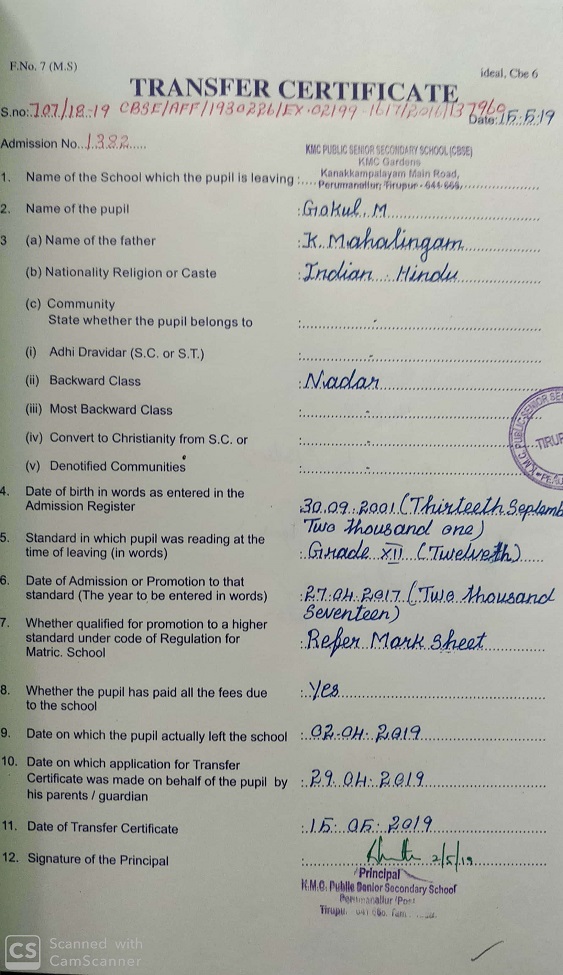 F.No. 7 (M.S)
ideal, Cbe 6
TRANSFER CERTIFICATE
S.no: 707/18-19 CBSE/AFF/1930226/EX-02199-1617/2016/137960
Date: 15.5.19
Admission No. 1382
KMC PUBLIC SENIOR SECONDARY SCHOOL (CBSE)
KMC Gardens
1. Name of the School which the pupil is leaving : Kanakkampalayam Main Road,
Perumanallur, Tirupur
2. Name of the pupil : Gokul. M
3 (a) Name of the father : K. Mahalingam
(b) Nationality Religion or Caste : Indian Hindu
(c) Community
State whether the pupil belongs to : -
(i) Adhi Dravidar (S.C. or S.T.) : -
(ii) Backward Class : Nadar
(iii) Most Backward Class : -
(iv) Convert to Christianity from S.C. or : -
(v) Denotified Communities : -
K.M.C. PUBLIC SENIOR SE
TIRUP
4. Date of birth in words as entered in the
Admission Register : 30.09.2001 (Thirteeth Septemb
Two thousand one)
5. Standard in which pupil was reading at the
time of leaving (in words) : Grade XII (Twelveth)
6. Date of Admission or Promotion to that
standard (The year to be entered in words) : 27.04.2017 (Two thousand
Seventeen)
7. Whether qualified for promotion to a higher
standard under code of Regulation for : Refer Mark Sheet
Matric. School
8. Whether the pupil has paid all the fees due : Yes
to the school
9. Date on which the pupil actually left the school : 02.04.2019
10. Date on which application for Transfer
Certificate was made on behalf of the pupil by : 29.04.2019
his parents / guardian
11. Date of Transfer Certificate : 15.05.2019
12. Signature of the Principal : 2/5/19
Principal
K.M.C. Public Senior Secondary School
Perumanallur (Post
CS Scanned with
CamScanner